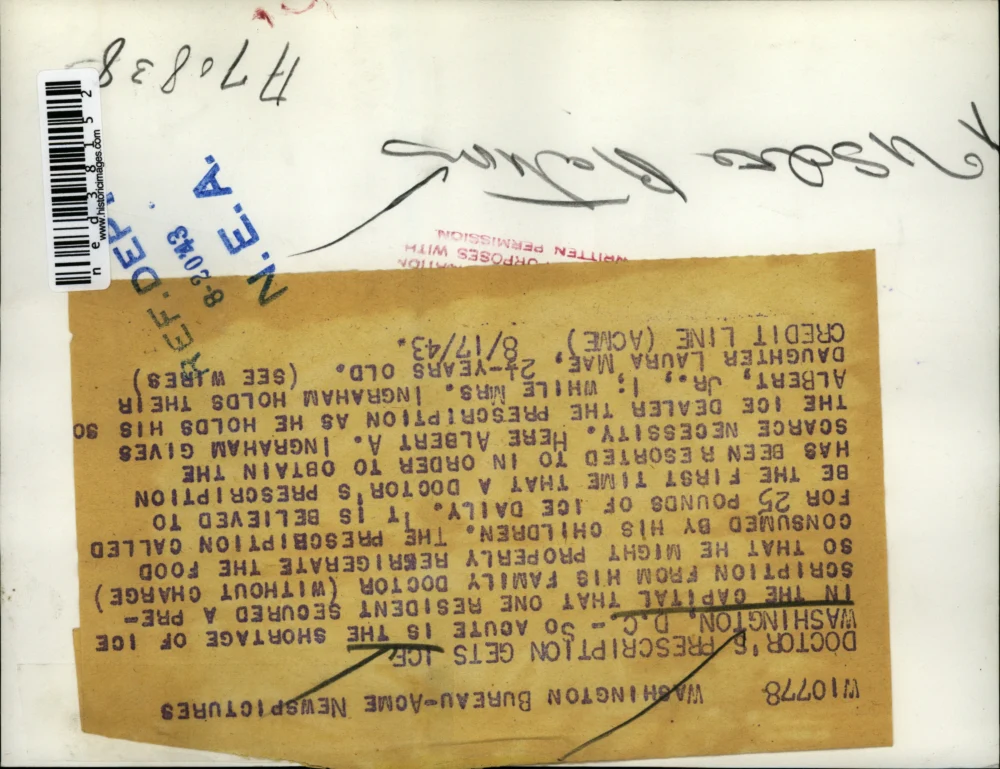 W10778 WASHINGTON BUREAU-ACME NEWSPICTURES
DOCTOR'S PRESCRIPTION GETS ICE
WASHINGTON, D.C. - SO ACUTE IS THE SHORTAGE OF ICE
IN THE CAPITAL THAT ONE RESIDENT SECURED A PRE-
SCRIPTION FROM HIS FAMILY DOCTOR (WITHOUT CHARGE)
SO THAT HE MIGHT PROPERLY REGRIGERATE THE FOOD
CONSUMED BY HIS CHILDREN. THE PRESCRIPTION CALLED
FOR 25 POUNDS OF ICE DAILY. IT IS BELIEVED TO
BE THE FIRST TIME THAT A DOCTOR'S PRESCRIPTION
HAS BEEN RESORTED TO IN ORDER TO OBTAIN THE
SCARCE NECESSITY. HERE ALBERT A. INGRAHAM GIVES
THE ICE DEALER THE PRESCRIPTION AS HE HOLDS HIS SO
ALBERT, JR., 1; WHILE MRS. INGRAHAM HOLDS THEIR
DAUGHTER LAURA MAE, 2½-YEARS OLD. (SEE WIRES)
CREDIT LINE (ACME) 8/17/43.
PURPOSES WITH
WRITTEN PERMISSION.
REF. DEPT
8-20-43
N.E.A.
ned38152
www.historicimages.com